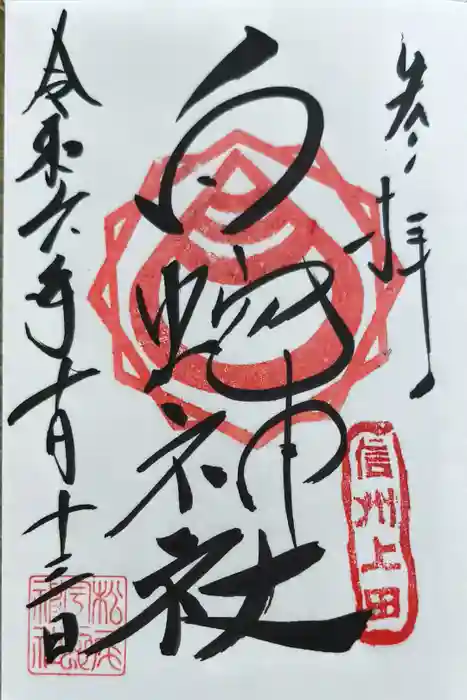 参拝
信州上田
白蛇神社
令和六年十月十三日